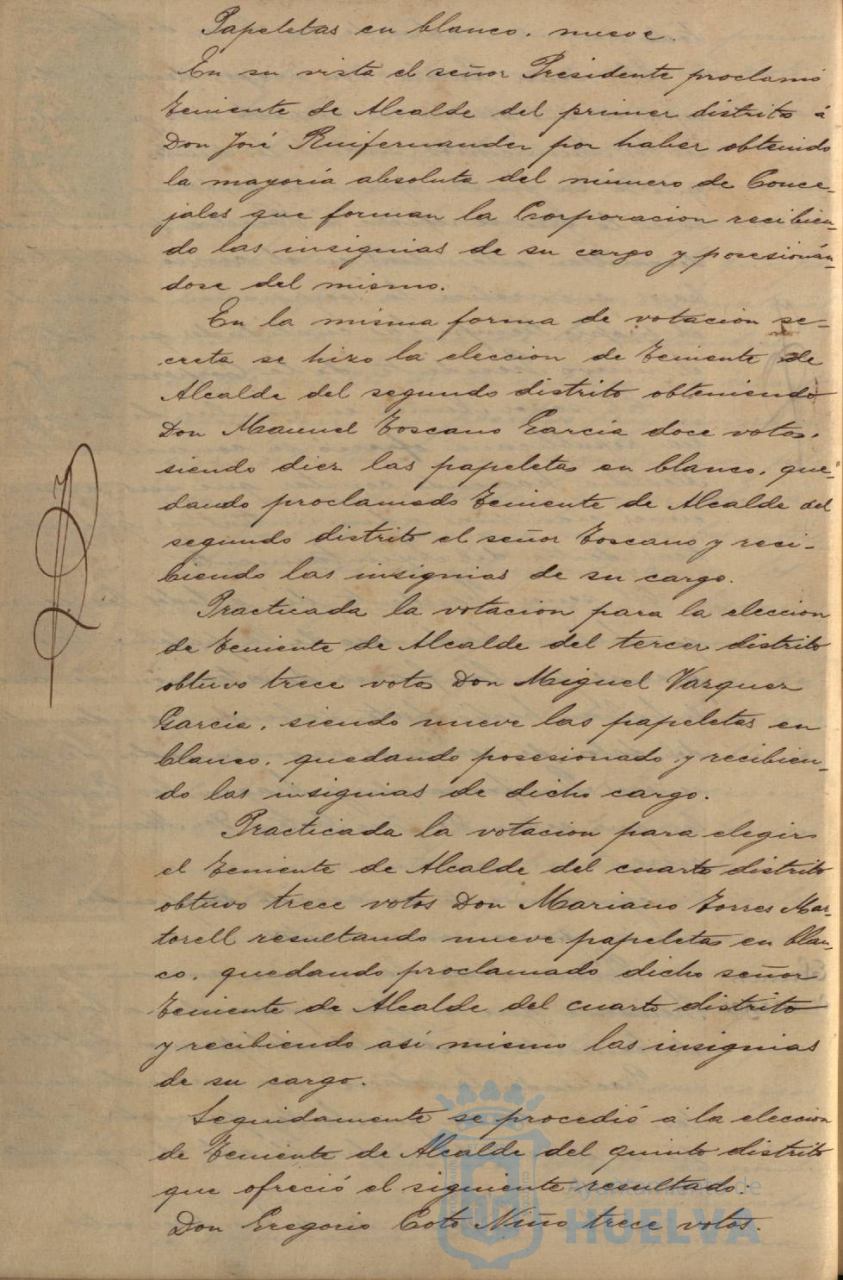 Papeletas en blanco. nueve.
En su vista el señor Presidente proclamó
Teniente de Alcalde del primer distrito á
Don José Ruifernandez por haber obtenido
la mayoría absoluta del número de Conce-
jales que forman la Corporacion recibien-
do las insignias de su cargo y posesionán-
dose del mismo.
En la misma forma de votacion se-
creta se hizo la eleccion de Teniente de
Alcalde del segundo distrito obteniendo
Don Manuel Toscano Garcia doce votos.
siendo diez las papeletas en blanco. que-
dando proclamado Teniente de Alcalde del
segundo distrito el señor Toscano y reci-
biendo las insignias de su cargo.
Practicada la votacion para la eleccion
de Teniente de Alcalde del tercer distrito
obtuvo trece votos Don Miguel Vazquez
Garcia. siendo nueve las papeletas en
blanco. quedando posesionado y recibien-
do las insignias de dicho cargo.
Practicada la votacion para elegir
el Teniente de Alcalde del cuarto distrito
obtuvo trece votos Don Mariano Torres Mar-
torell resultando nueve papeletas en blan-
co. quedando proclamado dicho señor
Teniente de Alcalde del cuarto distrito
y recibiendo así mismo las insignias
de su cargo.
Seguidamente se procedió á la eleccion
de Teniente de Alcalde del quinto distrito
que ofreció el siguiente resultado:
Don Gregorio Coto Niño trece votos.
Ayuntamiento de
HUELVA